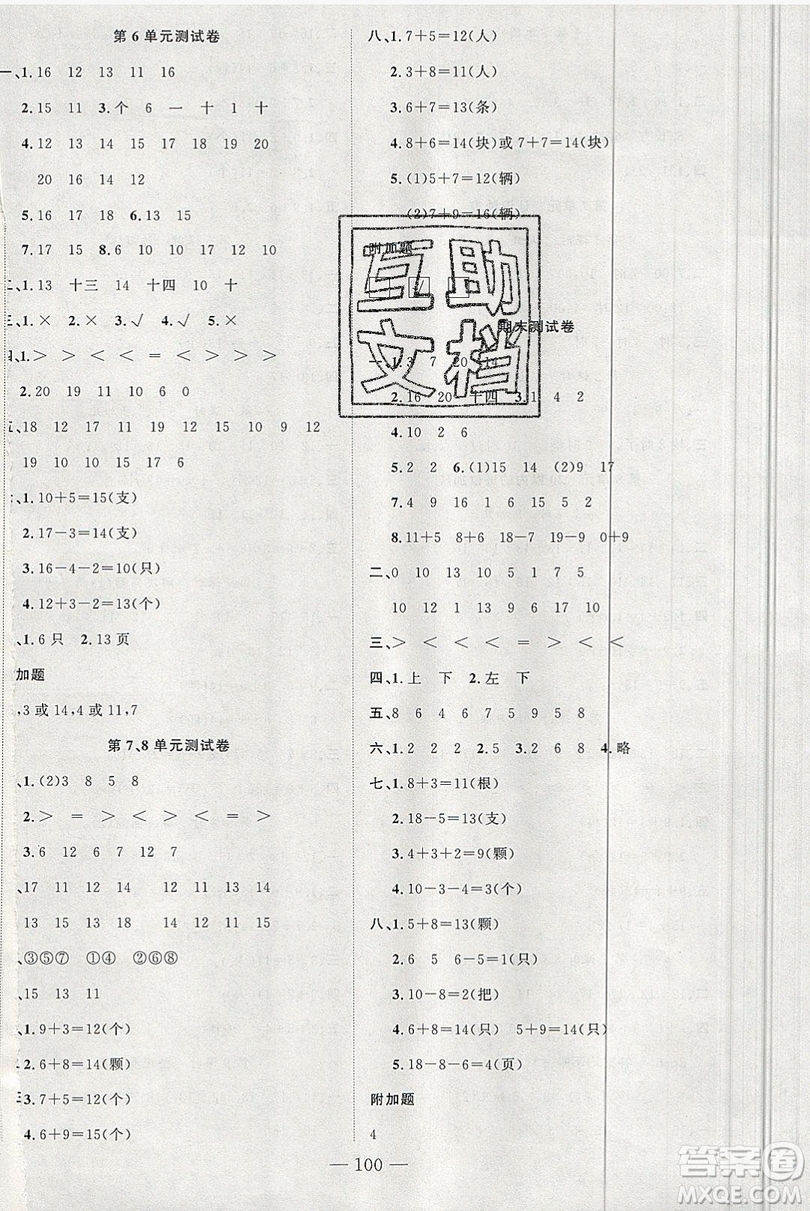 第6单元测试卷
一、1.16 12 13 11 16
2.15 11 3.个 6 一 十 1 十
4.12 13 14 15 17 18 19 20
20 16 14 12
5.16 17 18 6.13 15
7.17 15 8.6 10 10 17 12 10
二、1.13 十三 14 十四 10 十
三、1.× 2.× 3.√ 4.√ 5.×
四、1.> > < < = < > > >
2.20 19 11 10 6 0
五、18 12 17 12 15 10 9 12
19 10 10 15 15 6
1.10+5=15(支)
2.17-3=14(支)
3.16-4-2=10(只)
4.12+3-2=13(个)
、1.6只 2.13页
加题
,3或14,4或11,7
第7、8单元测试卷
、1.(2)3 8 5 8
2.> = > < < = >
3.6 12 6 7 12 7
、17 11 12 14 17 15 14 11
13 15 13 18 14 12 11 15
、③⑤⑦ ①④ ②⑥⑧
、15 13 11
、1.9+3=12(个)
2.6+8=14(颗)
3.7+5=12(个)
4.6+9=15(个)
八、1.7+5=12(人)
2.3+8=11(人)
3.6+7=13(条)
4.8+6=14(块)或7+7=14(块)
5.(1)5+7=12(辆)
(2)7+9-16(辆)
附加题
√
互助
文档
期末测试卷
一、1.3 7 20 14
2.16 20 十四 3.1 4 2
4.10 2 6
5.2 2 6.(1)15 14 (2)9 17
7.4 9 16 1 6 15 5 2
8.11+5 8+6 18-9 19-9 0+9
二、0 13 10 10 5 1 7 5
10 12 1 13 9 6 17 10
三、> < < < = > < <
四、1.上 下 2.左 下
五、8 6 4 6 7 5 9 5 8
六、1.2 2 2 2.5 3.2 6 8 4.略
七、1.8+3=11(根)
2.18-5=13(支)
3.4+3+2=9(颗)
4.10-3-4=3(个)
八、1.5+8=13(颗)
2.6 5 6-5=1(只)
3.10-8=2(把)
4.6+8=14(只) 5+9=14(只)
5.18-8-6=4(页)
附加题
4
— 100 —
答案圈
MXQE.COM